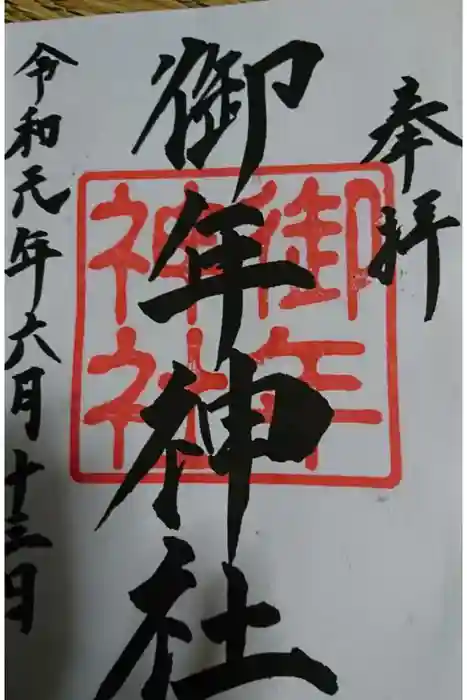 奉拝
御年神社
御年
神社
令和元年六月十三日